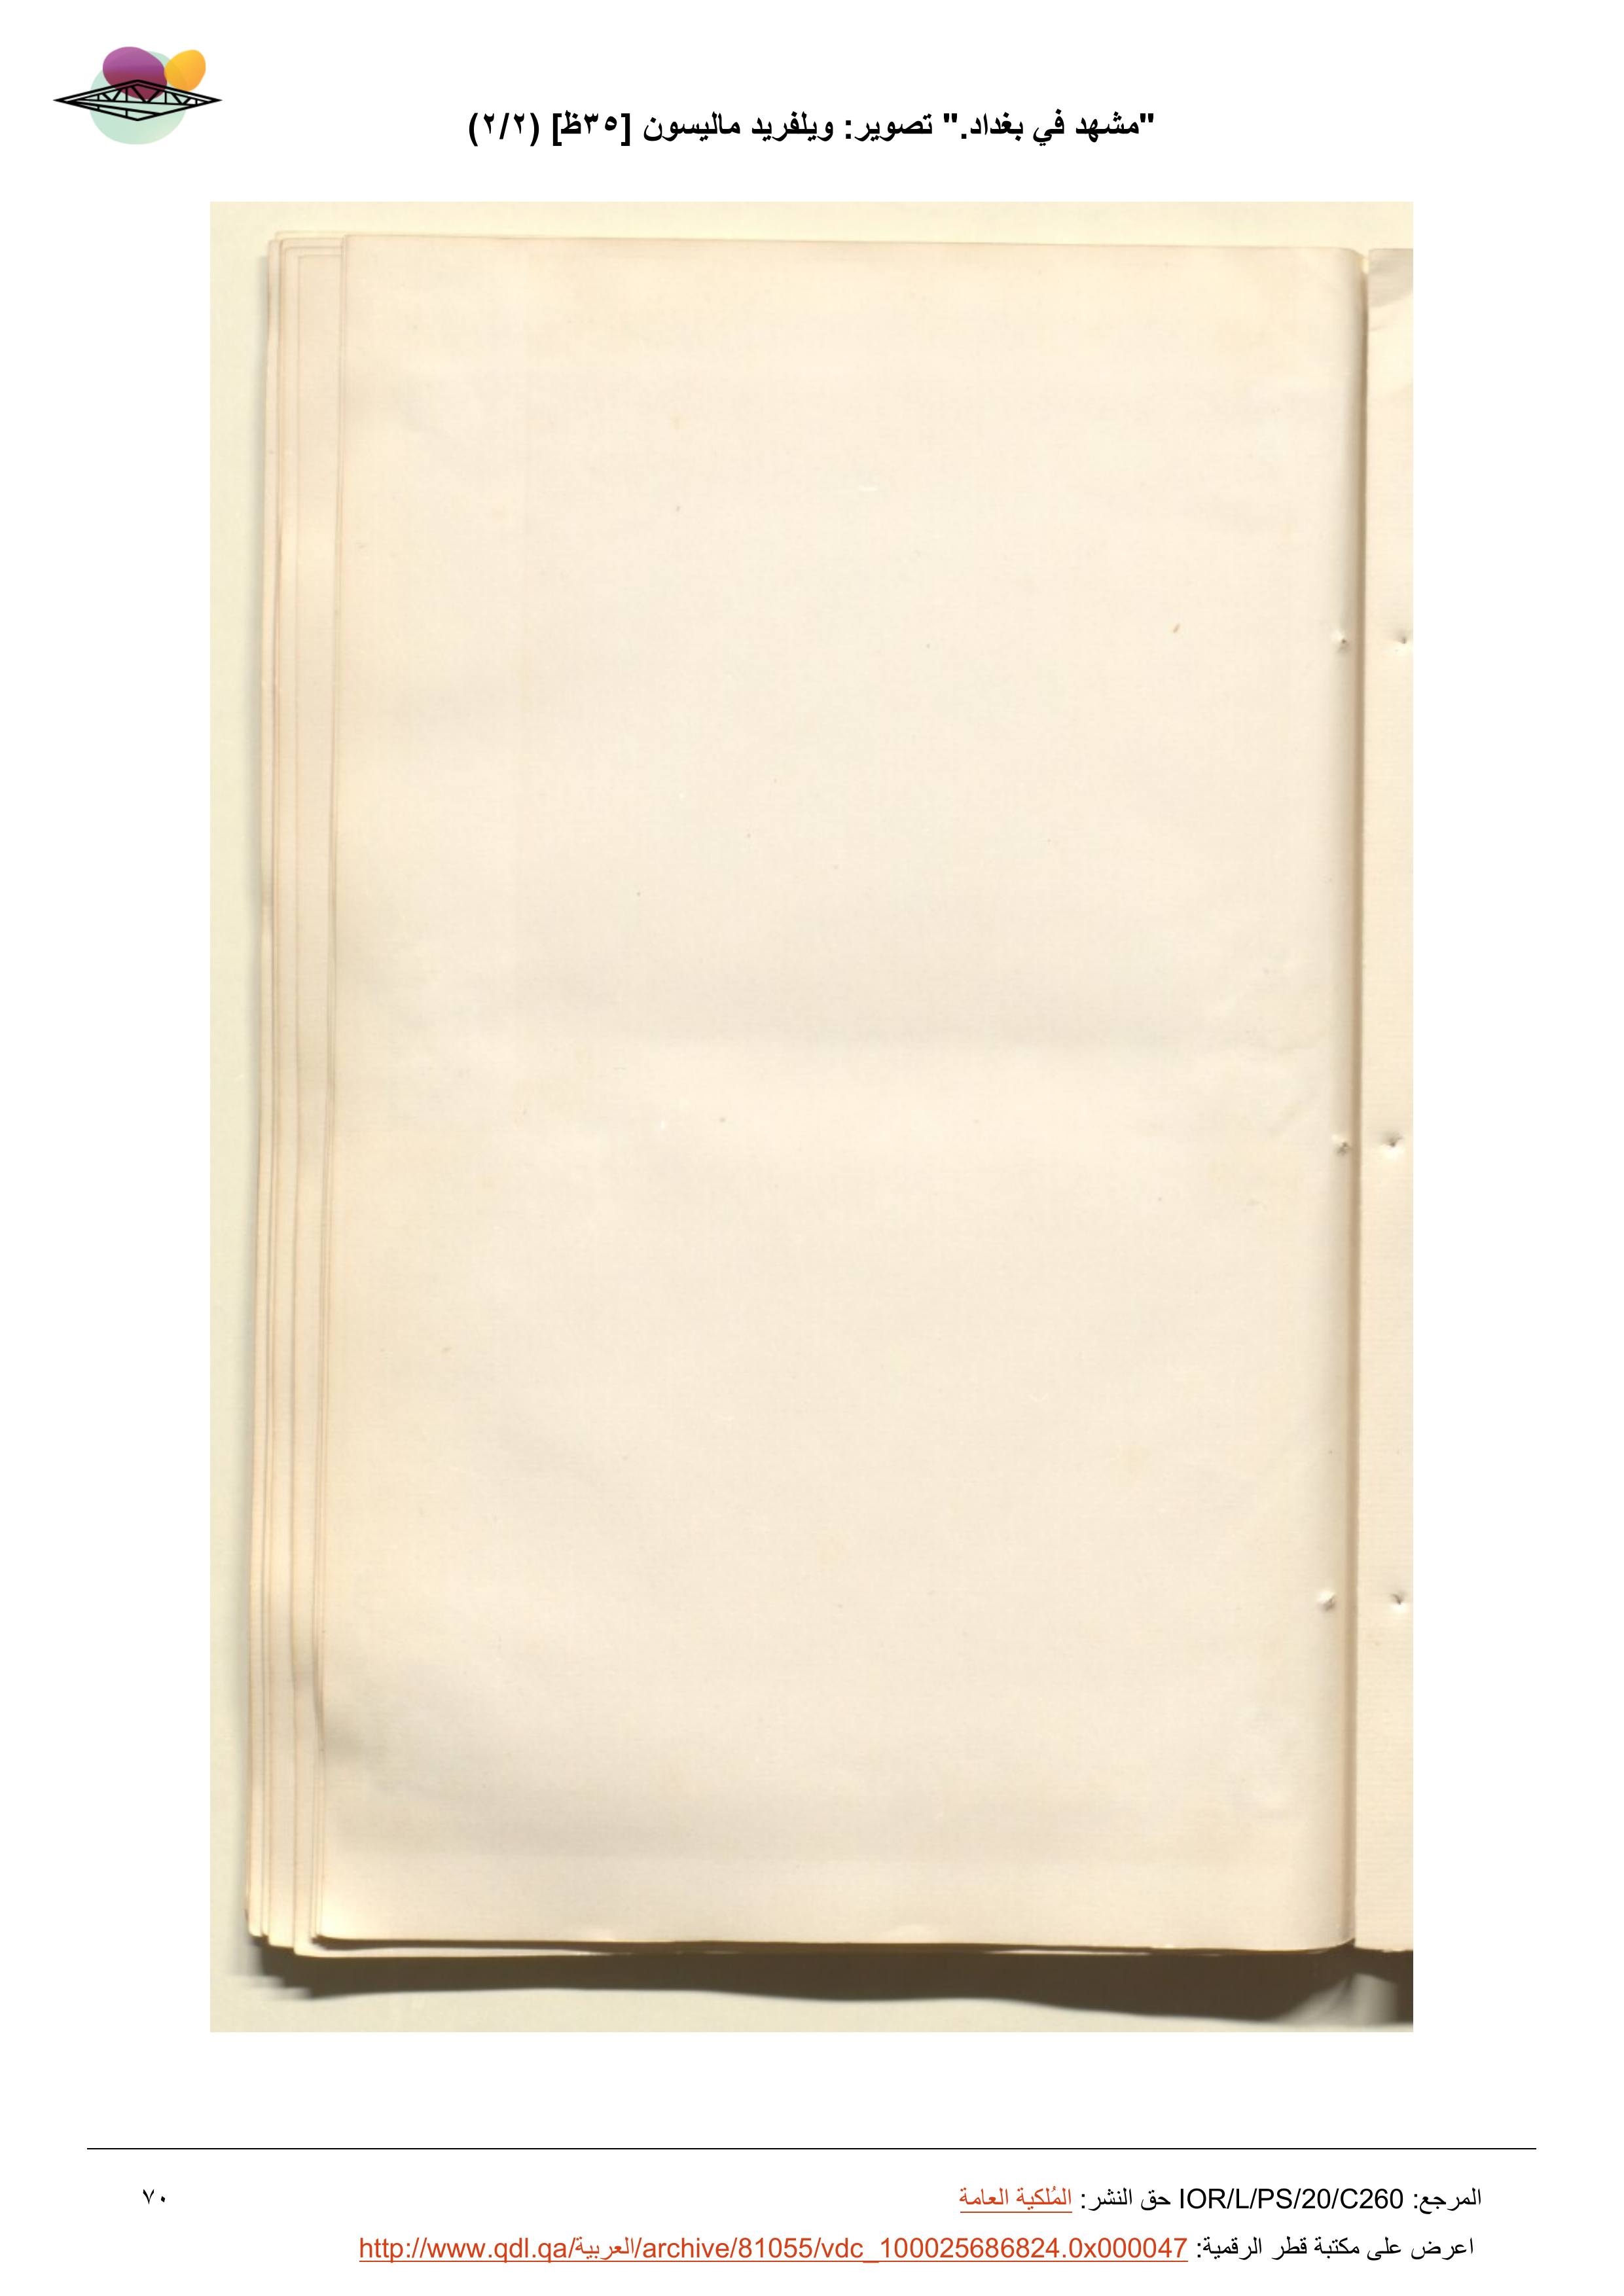 "مشهد في بغداد." تصوير: ويلفريد ماليسون [٣٥ظ] (٢/٢)
المرجع: IOR/L/PS/20/C260 حق النشر: المُلكية العامة
٧٠
اعرض على مكتبة قطر الرقمية: http://www.qdl.qa/العربية/archive/81055/vdc_100025686824.0x000047